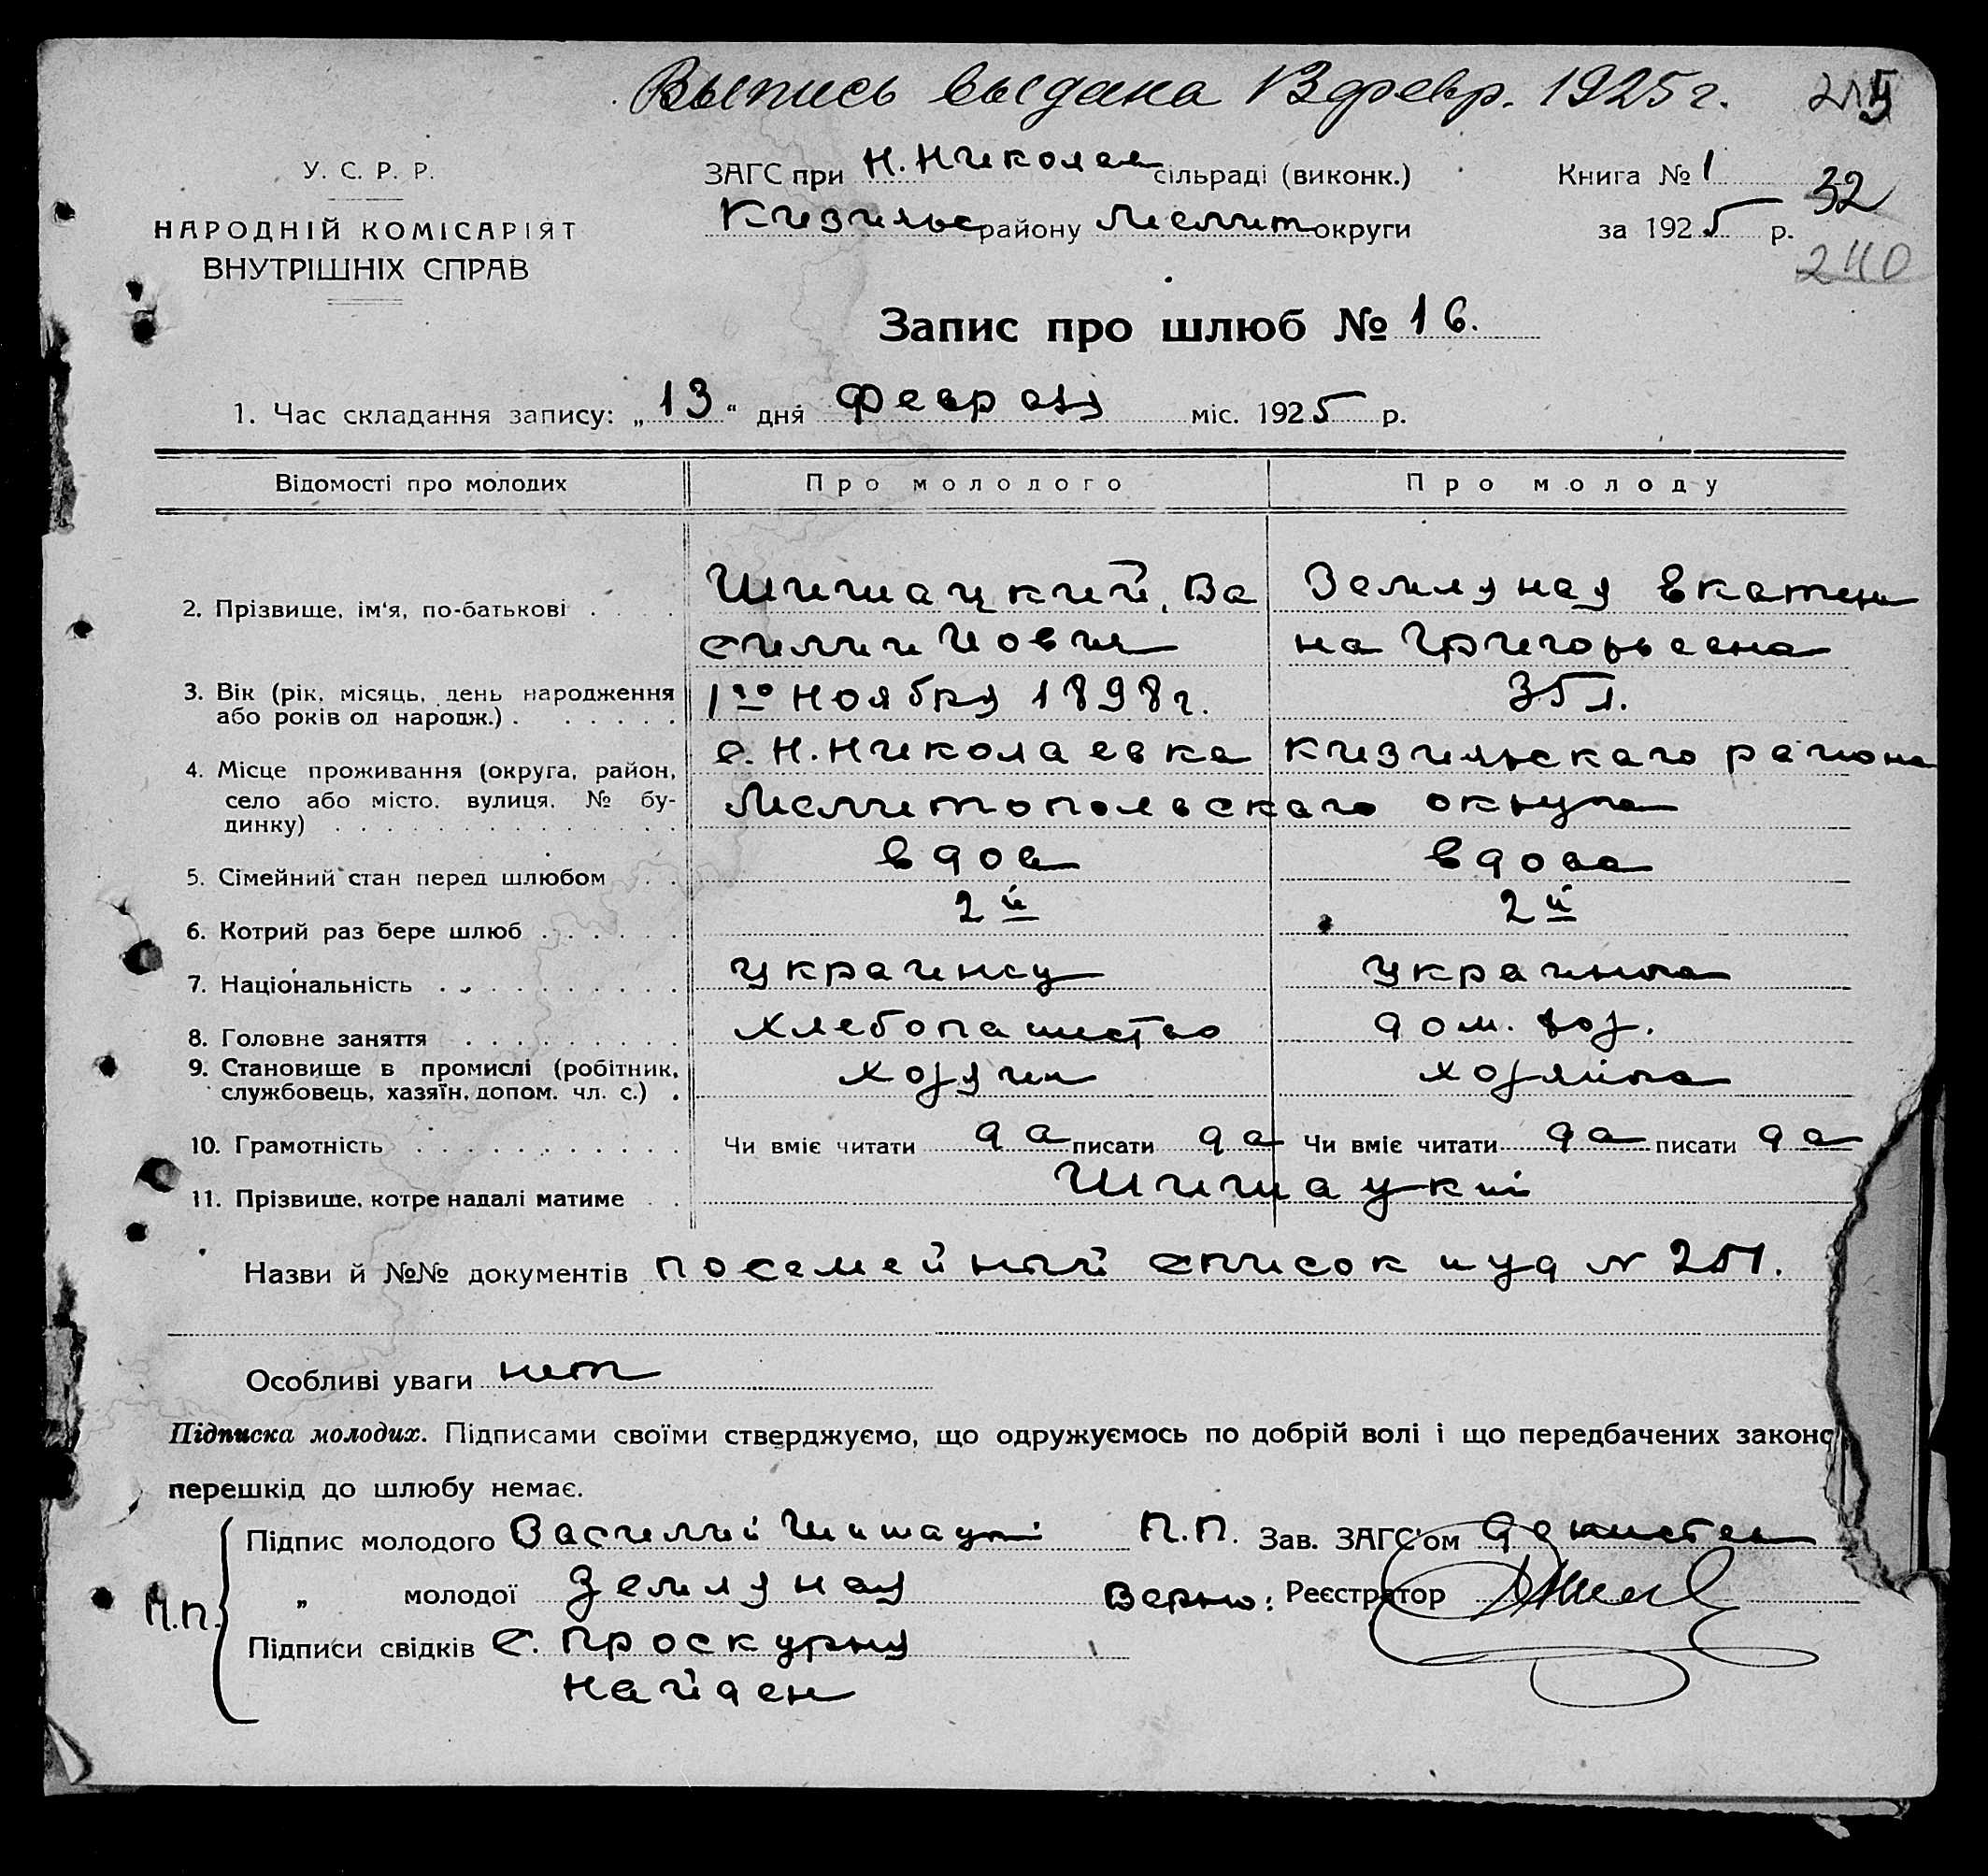 Выпись выдана 13 февр. 1925 г.
У. С. Р. Р.
НАРОДНІЙ КОМІСАРІЯТ
ВНУТРІШНІХ СПРАВ
ЗАГС при Н. Николаев сільраді (виконк.)
Кизильс району Мелит округи
Книга № 1
32
за 1925 р.
240
Запис про шлюб № 16.
1. Час складання запису: „13“ дня Февраля міс. 1925 р.
Відомості про молодих Про молодого Про молоду
2. Прізвище, ім'я, по-батькові Шишацкий, Ва Земляная Екатери
силий Иович на Григорьевна
3. Вік (рік, місяць, день народження 1го ноября 1898 г. 35 л.
або років од народж.)
с. Н. Николаевка Кизильскаго района
4. Місце проживання (округа, район,
село або місто, вулиця, № бу- Мелитопольскаго округа
динку)
5. Сімейний стан перед шлюбом вдов вдова
6. Котрий раз бере шлюб 2й 2й
7. Національність украинец украинка
8. Головне заняття хлебопашество дом. хоз.
9. Становище в промислі (робітник, хозяин хозяйка
службовець, хазяїн, допом. чл. с.)
10. Грамотність Чи вміє читати да писати да Чи вміє читати да писати да
11. Прізвище, котре надалі матиме Шишацкий
Назви й №№ документів посемейный список и уд № 251.
Особливі уваги нет
Підписка молодих. Підписами своїми стверджуємо, що одружуємось по добрій волі і що передбачених законо
перешкід до шлюбу немає.
Підпис молодого Василий Шишацкий П.П. Зав. ЗАГС'ом
М.П. „ молодої Земляная Верно: Реєстратор
Підписи свідків С. Проскурня
Найден